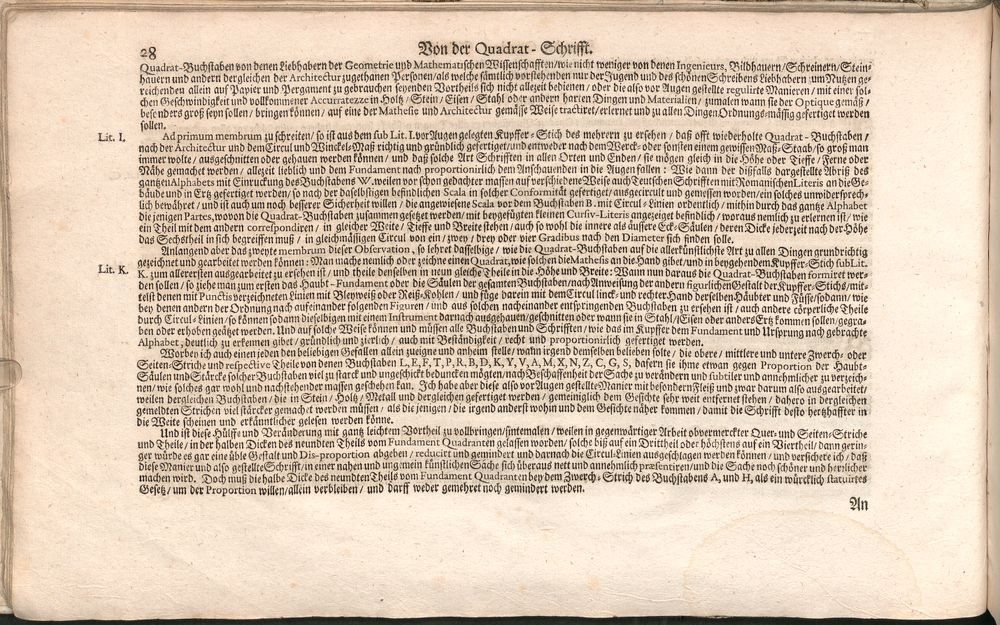 28
Von der Quadrat-Schrifft.
Quadrat-Buchstaben von denen Liebhabern der Geometrie und Mathematischen Wissenschafften/ wie nicht weniger von denen Ingenieurs, Bildhauern/ Schreinern/ Stein-
hauern und andern dergleichen der Architectur zugethanen Personen/ als welche sämtlich vorstehenden nur der Jugend und des schönen Schreibens Liebhabern/ zum Nutzen ge-
reichenden allein auf Papier und Pergament zu gebrauchen seyenden Vortheils sich nicht allezeit bedienen/ oder die also vor Augen gestellte regulirte Manieren/ mit einer sol-
chen Geschwindigkeit und vollkommener Accurratezze in Holtz/ Stein/ Eisen/ Stahl oder andern harten Dingen und Materialien/ zumalen wann sie der Optique gemäß/
besonders groß seyn sollen/ bringen können/ auf eine der Mathesie und Architectur gemässe Weise tractiret/ erlernet und zu allen Dingen Ordnungs-mässig gefertiget werden
sollen.
Lit. I.
Ad primum membrum zu schreiten/ so ist aus dem sub Lit. I. vor Augen gelegten Kupffer-Stich des mehrern zu ersehen/ daß offt wiederholte Quadrat-Buchstaben/
nach der Architectur und dem Circul und Winckel-Maß richtig und gründlich gefertiget/ und entweder nach dem Werck- oder sonsten einem gewissen Maß-Staab/ so groß man
immer wolte/ ausgeschnitten oder gehauen werden können/ und daß solche Art Schrifften in allen Orten und Enden/ sie mögen gleich in die Höhe oder Tieffe/ Ferne oder
Nähe gemachet werden/ allezeit lieblich und dem Fundament nach proportionirlich dem Anschauenden in die Augen fallen: Wie dann der dißfalls dargestellte Abriß des
gantzen Alphabets mit Einruckung des Buchstabens W. weilen vor schon gedachter massen auf verschiedene Weise auch Teutschen Schrifften mit Romanischen Literis an die Ge-
bäude und in Ertz gefertiget werden/ so nach der daselbsigen befindlichen Scala in solcher Conformität gefertiget/ ausgecircult und gemessen worden/ ein solches unwidersprech-
lich bewähret/ und ist auch um noch besserer Sicherheit willen/ die angewiesene Scala vor dem Buchstaben B. mit Circul-Linien ordentlich/ mithin durch das gantze Alphabet
die jenigen Partes, wovon die Quadrat-Buchstaben zusammen gesetzet werden/ mit beygefügten kleinen Cursiv-Literis angezeiget befindlich/ woraus nemlich zu erlernen ist/ wie
ein Theil mit dem andern correspondiren/ in gleicher Weite/ Tieffe und Breite stehen/ auch so wohl die innere als äussere Eck-Säulen/ deren Dicke jederzeit nach der Höhe
das Sechstheil in sich begreiffen muß/ in gleichmässigen Circul von ein/ zwey/ drey oder vier Gradibus nach den Diameter sich finden solle.
Anlangend aber das zweyte membrum dieser Observation, so lehret dasselbige/ wie die Quadrat-Buchstaben auf die allerkünstlichste Art zu allen Dingen grundrichtig
gezeichnet und gearbeitet werden können: Man mache nemlich oder zeichne einen Quadrat, wie solchen die Mathesis an die Hand gibet/ und in beygehendem Kupffer-Stich sub Lit.
Lit. K.
K. zum allerersten ausgearbeitet zu ersehen ist/ und theile denselben in neun gleiche Theile in die Höhe und Breite: Wann nun daraus die Quadrat-Buchstaben formiret wer-
den sollen/ so ziehe man zum ersten das Haubt-Fundament oder die Säulen der gesamten Buchstaben/ nach Anweisung der andern figurlichen Gestalt der Kupffer-Stichs/ mit-
telst denen mit Punctis verzeichneten Linien mit Bleyweiß oder Reiß-Kohlen/ und füge darein mit dem Circul linck- und rechter Hand derselben Häubter und Füsse/ sodann/ wie
bey denen andern der Ordnung nach aufeinander folgenden Figuren/ und aus solchen nacheinander entspringenden Buchstaben zu ersehen ist/ auch andere cörperliche Theile
durch Circul-Linien/ so können sodann dieselbigen mit einem Instrument darnach ausgehauen/ geschnitten oder wann sie in Stahl/ Eisen oder anders Ertz kommen sollen/ gegra-
ben oder erhoben geätzet werden. Und auf solche Weise können und müssen alle Buchstaben und Schrifften/ wie das im Kupffer dem Fundament und Ursprung nach gebrachte
Alphabet, deutlich zu erkennen gibet/ gründlich und zierlich/ auch mit Beständigkeit/ recht und proportionirlich gefertiget werden.
Worbey ich auch einen jeden den beliebigen Gefallen allein zueigne und anheim stelle/ wann irgend demselben belieben solte/ die obere/ mittlere und untere Zwerch- oder
Seiten-Striche und respective Theile von denen Buchstaben L, E, F, T, P, R, B, D, K, Y, V, A, M, X, N, Z, C, G, S, dafern sie ihme etwan gegen Proportion der Haubt-
Säulen und Stärcke solcher Buchstaben viel zu starck und ungeschickt beduncken mögten/ nach Beschaffenheit der Sache zu verändern und subtiler und annehmlicher zu verzeich-
nen/ wie solches gar wohl und nachstehender massen geschehen kan. Ich habe aber diese also vor Augen gestellte Manier mit besondern Fleiß und zwar darum also ausgearbeitet/
weilen dergleichen Buchstaben/ die in Stein/ Holtz/ Metall und dergleichen gefertiget werden/ gemeiniglich dem Gesichte sehr weit entfernet stehen/ dahero in dergleichen
gemeldten Strichen viel stärcker gemachet werden müssen/ als die jenigen/ die irgend anderst wohin und dem Gesichte näher kommen/ damit die Schrifft desto hertzhaffter in
die Weite scheinen und erkänntlicher gelesen werden könne.
Und ist diese Hülff- und Veränderung mit gantz leichtem Vortheil zu vollbringen/ sintemalen/ weilen in gegenwärtiger Arbeit obvermerckter Quer- und Seiten-Striche
und Theile/ in der halben Dicken des neundten Theils vom Fundament Quadranten gelassen worden/ solche biß auf ein Drittheil oder höchstens auf ein Viertheil/ dann gerin-
ger würde es gar eine üble Gestalt und Dis-proportion abgeben/ reducirt und gemindert und darnach die Circul-Linien ausgeschlagen werden können/ und versichere ich/ daß
diese Manier und also gestellte Schrifft/ in einer nahen und ungemein künstlichen Sache sich überaus nett und annehmlich præsentiren/ und die Sache noch schöner und herrlicher
machen wird. Doch muß die halbe Dicke des neundten Theils vom Fundament Quadranten bey dem Zwerch-Strich des Buchstabens A, und H, als ein würcklich statuirtes
Gesetz/ um der Proportion willen/ allein verbleiben/ und darff weder gemehret noch gemindert werden.
An